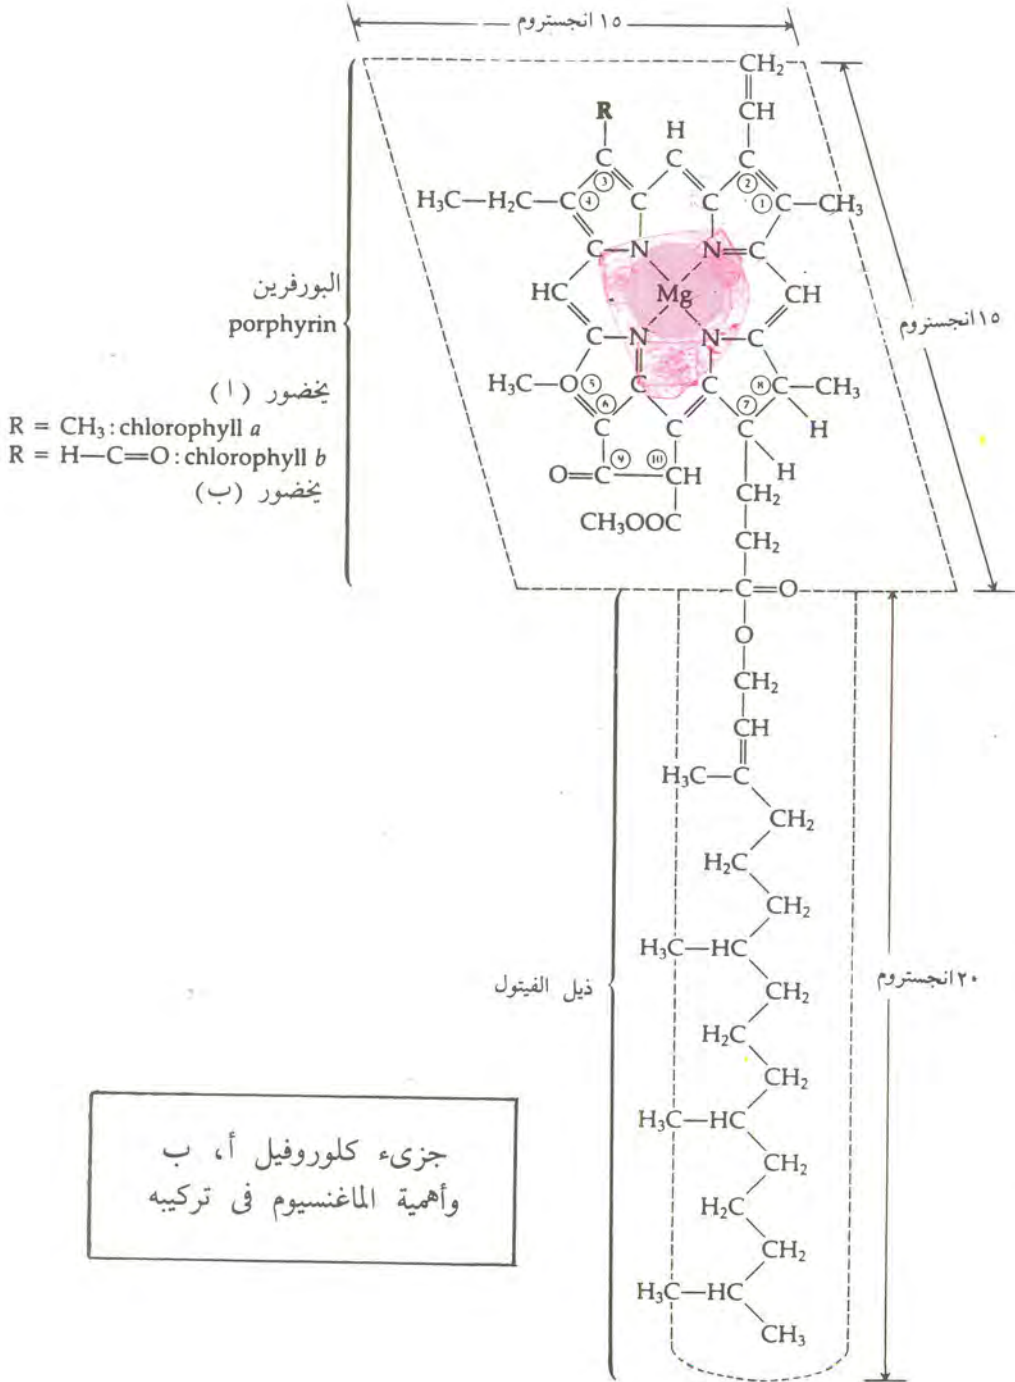 ١٥ انجستروم
CH₂
CH
R
H
C C C
③ ②
H₃C—H₂C—C ④ C C ① C—CH₃
C—N N=C
HC Mg CH
١٥ انجستروم
C—N N—C
H₃C—O ⑤ C C ⑧ C—CH₃
⑥ ⑦
C C C C H
O=C ٩ ⑩ CH H
CH₂
CH₃OOC
CH₂
C=O
O
CH₂
CH
H₃C—C
CH₂
H₂C
CH₂
H₃C—HC
CH₂
H₂C
CH₂
H₃C—HC
CH₂
H₂C
CH₂
H₃C—HC
CH₃
البورفرين
porphyrin
يخضور (ا)
R = CH₃: chlorophyll a
R = H—C=O: chlorophyll b
يخضور (ب)
ذيل الفيتول
٢٠ انجستروم
جزىء كلوروفيل أ، ب
وأهمية الماغنسيوم فى تركيبه